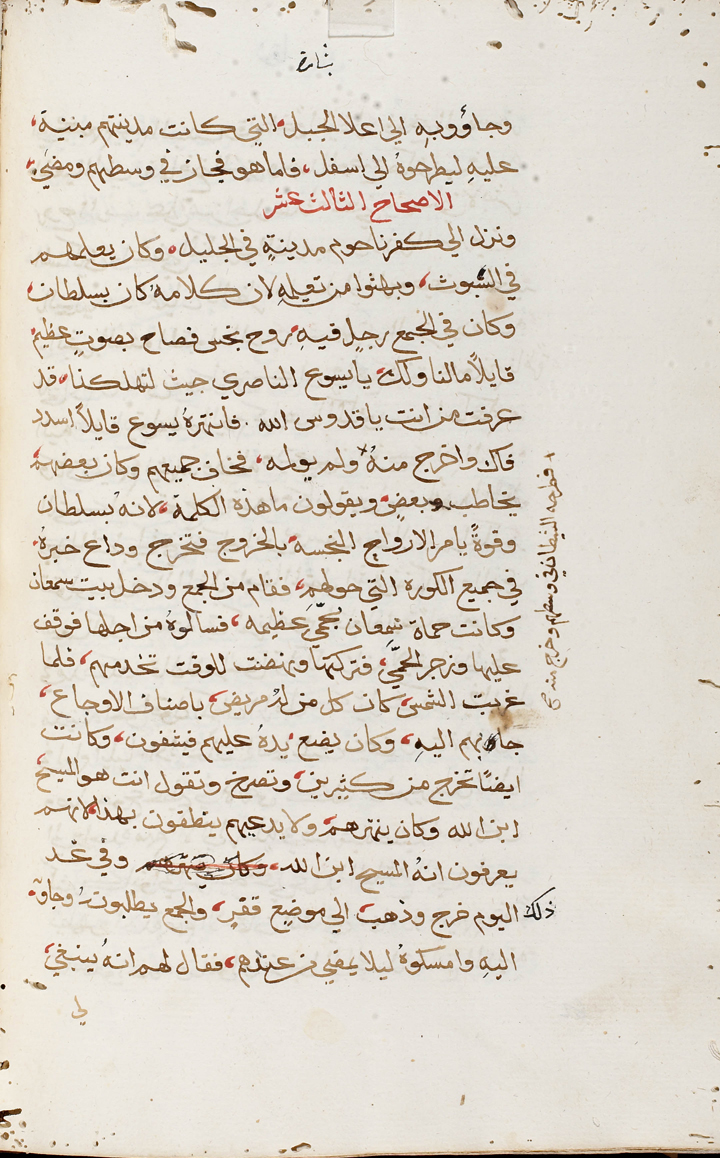 بشارة
وجاؤوبهِ الي اعلا الجبل، التي كانت مدينتهم مبنية،
عليهِ ليطرحوهُ الي اسفل، فاما هو فجاز في وسطهم ومضي،
الاصحاح الثالث عشر
ونزل الي كفرناحوم مدينةٍ في الجليل، وكان يعلمهم
في السبوت، وبهثوا من تعليمهِ لان كلامهُ كان بسلطان،
وكان في المجمع رجل فيهِ روح نجس فصاح بصوتٍ عظيم
قايلاً مالنا ولك، يا يسوع الناصري جيت لتهلكنا، قد
عرفت من انت يا قدوس الله. فانتهرهُ يسوع قايلاً اسدد
فاك واخرج منهُ ولم يولمه، فخاف جميعهم وكان بعضهم
يخاطب بعضٍ ويقولون ما هذه الكلمة، لانهُ بسلطان
وقوةً يامر الارواح النجسه بالخروج فتخرج وداع خبرهُ،
في جميع الكورة التي حولهم، فقام من المجمع ودخل بيت سمعان
وكانت حماة سمعان بحمّي عظيمه، فسالوهُ من اجلها فوقف
عليها وزجر الحمّي، فتركتها ونهضت للوقت تخدمهم، فلما
غربت الشمس كان كل من لهُ مريض، باصناف الاوجاع،
جاوبهم اليهِ، وكان يضع يدهُ عليهم فيشفون، وكانت
ايضًا تخرج من كثيرين، وتصرخ وتقول انت هو المسيح
ابن الله وكان ينهرهم، ولا يدعهم ينطقون بهذا لانهم
يعرفون انهُ المسيح ابن الله، وكان ينتهرهم وفي غد
ذلك اليوم خرج وذهب الي موضع قفرٍ، والجمع يطلبونهُ وجاوّ،
اليهِ وامسكوهُ ليلا يمضي من عندهم، فقال لهم انهُ ينبغي،
لي
فطرحه الشيطان في وسطهم وخرج منه